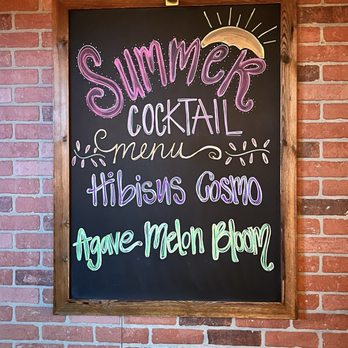 Summer
COCKTAIL
menu
Hibisus Cosmo
Agave Melon Bloom